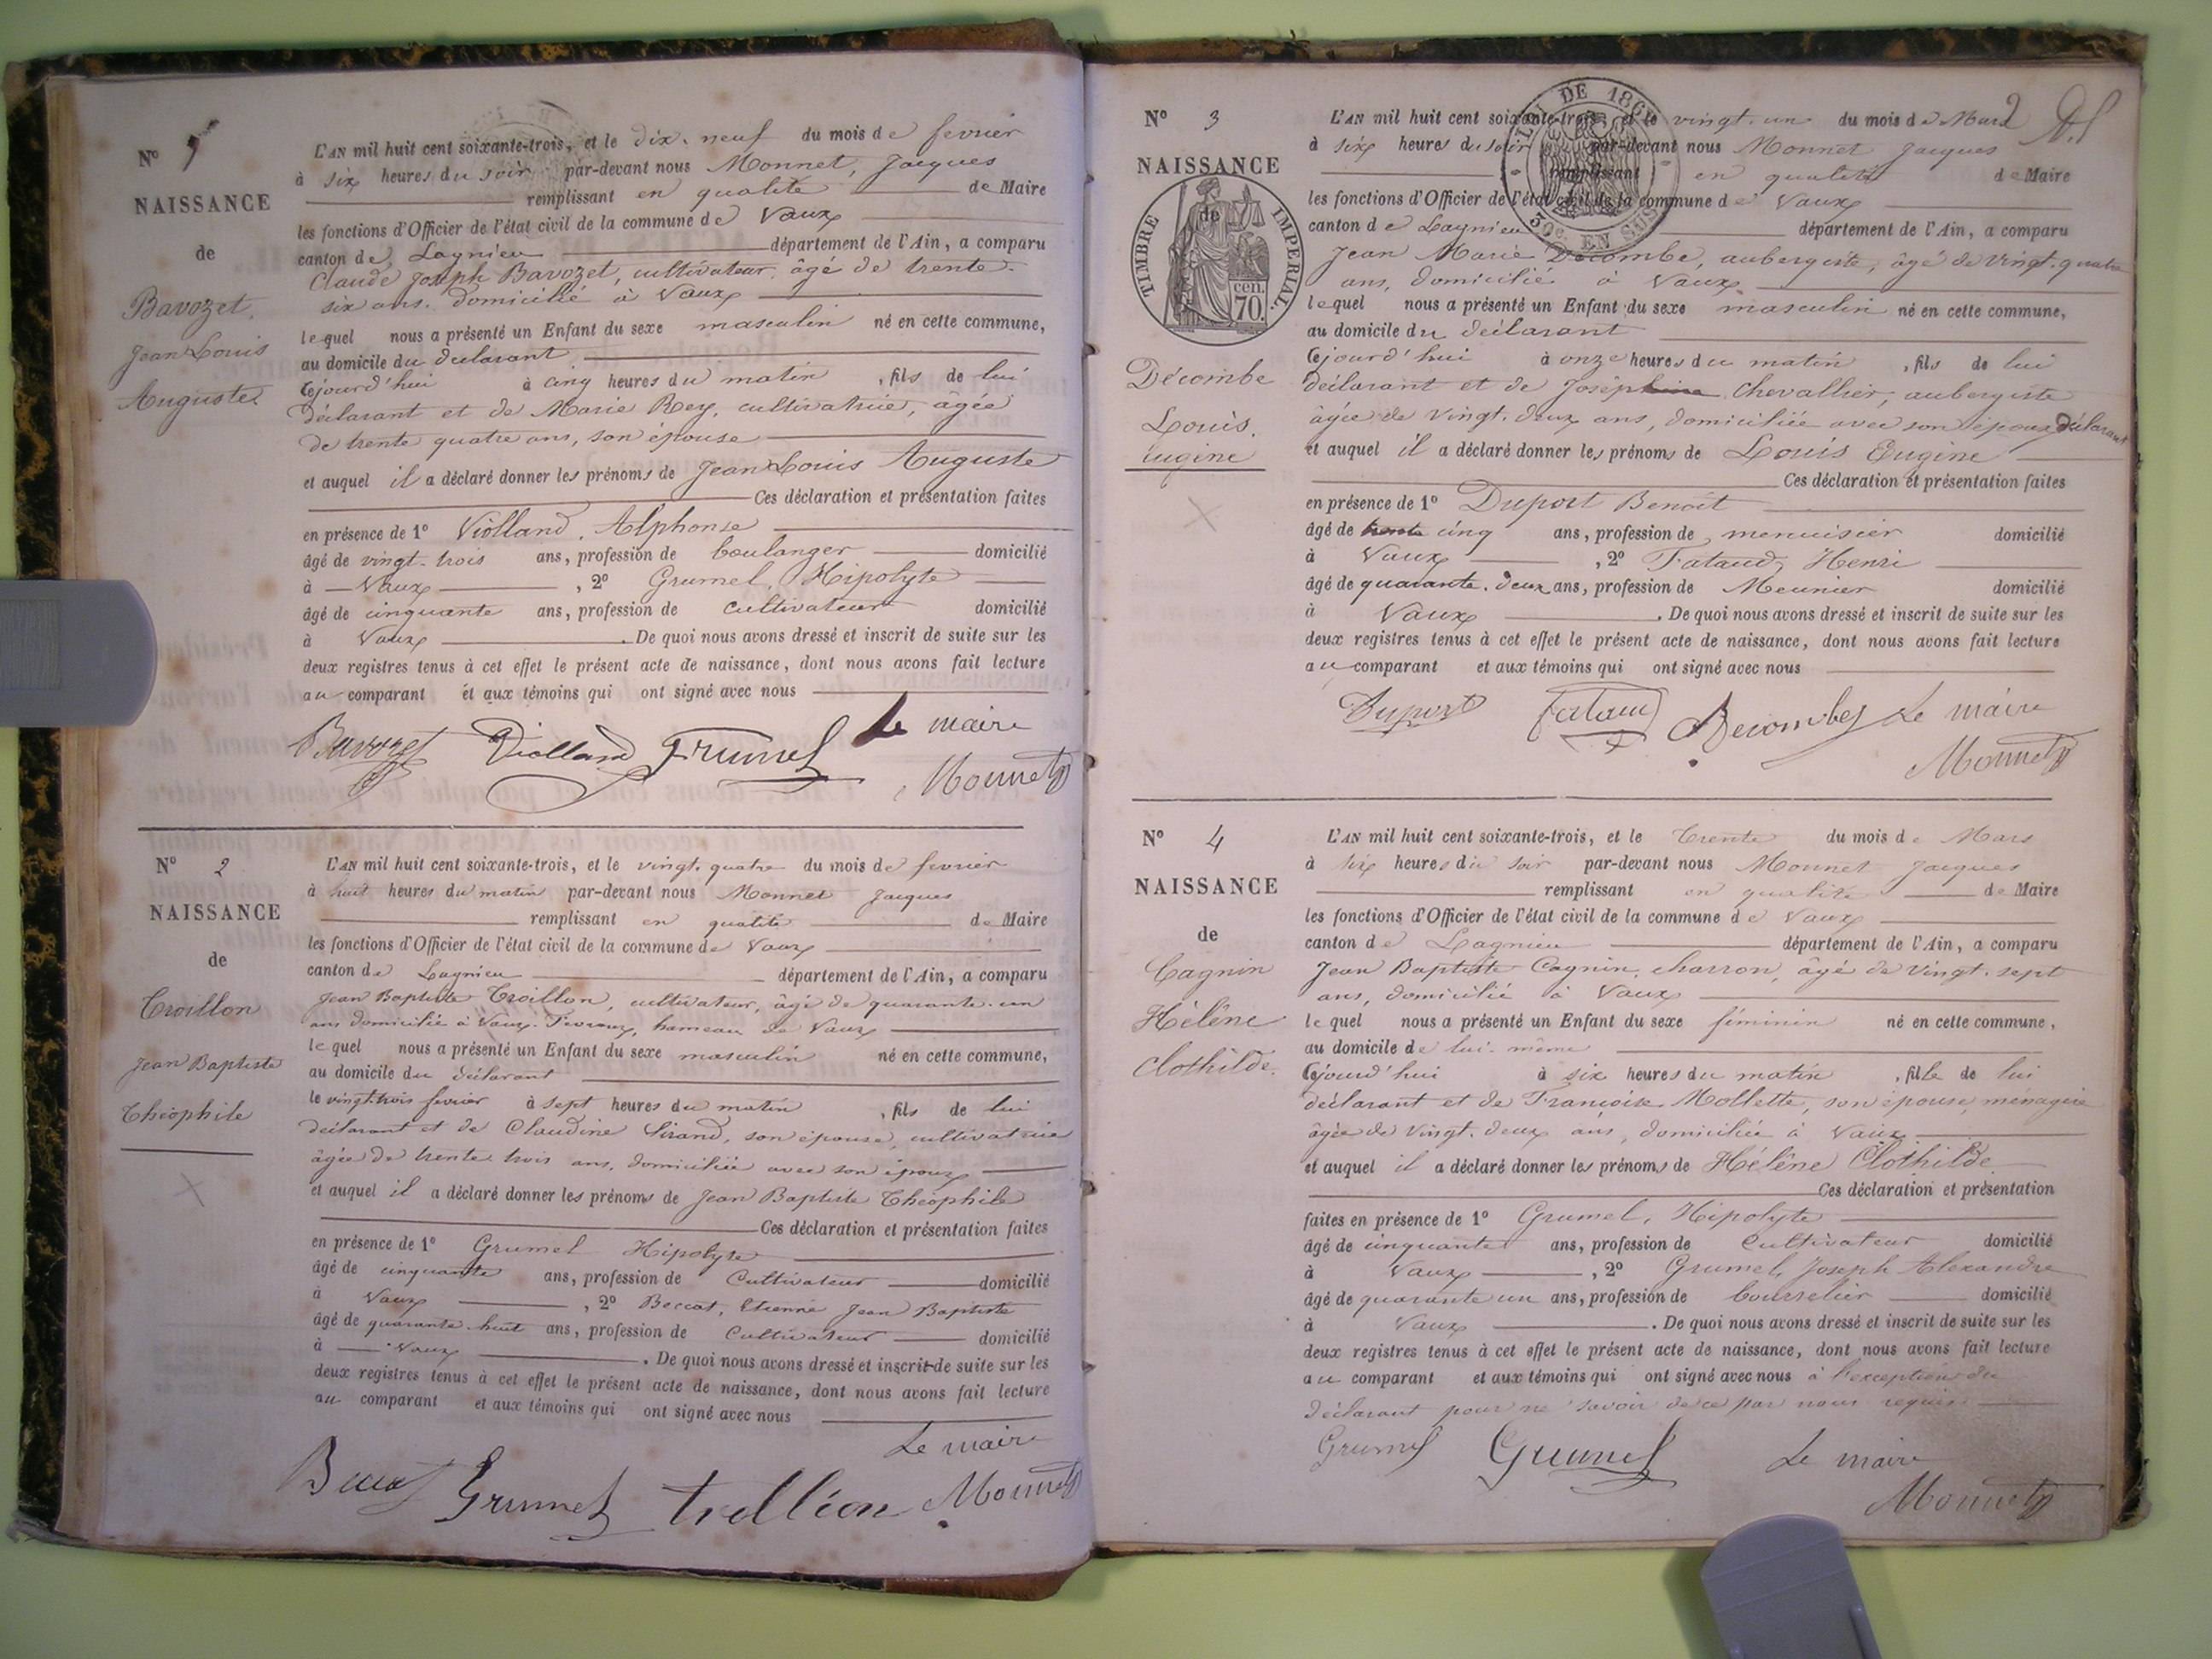 N° 1
NAISSANCE
de
Bavozet,
Jean Louis
Auguste.
L'AN mil huit cent soixante-trois, et le dix-neuf du mois de fevrier
à six heures du soir par-devant nous Monnet, Jacques
remplissant en qualité de Maire
les fonctions d'Officier de l'état civil de la commune de Vaux
canton de Lagnieu département de l'Ain, a comparu
Claude Joseph Bavozet, cultivateur, âgé de trente-
six ans, domicilié à Vaux
lequel nous a présenté un Enfant du sexe masculin né en cette commune,
au domicile du déclarant
cejourd'hui à cinq heures du matin, fils de lui
déclarant et de Marie Rey, cultivatrice, âgée
de trente quatre ans, son épouse
et auquel il a déclaré donner les prénoms de Jean Louis Auguste
Ces déclaration et présentation faites
en présence de 1° Violland, Alphonse
âgé de vingt-trois ans, profession de boulanger domicilié
à Vaux, 2° Grumel, Hipolyte
âgé de cinquante ans, profession de cultivateur domicilié
à Vaux. De quoi nous avons dressé et inscrit de suite sur les
deux registres tenus à cet effet le présent acte de naissance, dont nous avons fait lecture
au comparant et aux témoins qui ont signé avec nous
Bavozet Violland Grumel Le maire
Monnet
N° 2
NAISSANCE
de
Croillon
Jean Baptiste
Théophile
L'AN mil huit cent soixante-trois, et le vingt-quatre du mois de fevrier
à huit heures du matin par-devant nous Monnet Jacques
remplissant en qualité de Maire
les fonctions d'Officier de l'état civil de la commune de Vaux
canton de Lagnieu département de l'Ain, a comparu
Jean Baptiste Croillon, cultivateur, âgé de quarante-un
ans domicilié à Vaux-Fevroux, hameau de Vaux
lequel nous a présenté un Enfant du sexe masculin né en cette commune,
au domicile du déclarant
le vingt-trois fevrier à sept heures du matin, fils de lui
déclarant et de Claudine Sirand, son épouse, cultivatrice
âgée de trente trois ans, domiciliée avec son époux
et auquel il a déclaré donner les prénoms de Jean Baptiste Théophile
Ces déclaration et présentation faites
en présence de 1° Grumel Hipolyte
âgé de cinquante ans, profession de Cultivateur domicilié
à Vaux, 2° Beccat, Etienne Jean Baptiste
âgé de quarante-huit ans, profession de Cultivateur domicilié
à Vaux. De quoi nous avons dressé et inscrit de suite sur les
deux registres tenus à cet effet le présent acte de naissance, dont nous avons fait lecture
au comparant et aux témoins qui ont signé avec nous
Le maire
Grumel trellion Monnet
2
N° 3
NAISSANCE
de
TIMBRE IMPERIAL.
cen. 70.
Décombe
Louis,
Eugène
L'AN mil huit cent soixante-trois, et le vingt-un du mois de Mars
à six heures du soir par-devant nous Monnet Jacques
remplissant en qualité de Maire
les fonctions d'Officier de l'état civil de la commune de Vaux
canton de Lagnieu département de l'Ain, a comparu
Jean Marie Décombe, aubergiste, âgé de vingt-quatre
ans, domicilié à Vaux
lequel nous a présenté un Enfant du sexe masculin né en cette commune,
au domicile du déclarant
cejourd'hui à onze heures du matin, fils de lui
déclarant et de Josephine Chevallier, aubergiste
âgée de vingt-deux ans, domiciliée avec son époux déclarant
et auquel il a déclaré donner les prénoms de Louis Eugène
Ces déclaration et présentation faites
en présence de 1° Duport Benoit
âgé de trente cinq ans, profession de menuisier domicilié
à Vaux, 2° Fataud, Henri
âgé de quarante-deux ans, profession de Meunier domicilié
à Vaux. De quoi nous avons dressé et inscrit de suite sur les
deux registres tenus à cet effet le présent acte de naissance, dont nous avons fait lecture
au comparant et aux témoins qui ont signé avec nous
Duport Fataud Decombes Le maire
Monnet
LOI DE 186
50c. EN SUS
N° 4
NAISSANCE
de
Cagnin
Hélène
Clothilde.
L'AN mil huit cent soixante-trois, et le trente du mois de Mars
à six heures du soir par-devant nous Monnet Jacques
remplissant en qualité de Maire
les fonctions d'Officier de l'état civil de la commune de Vaux
canton de Lagnieu département de l'Ain, a comparu
Jean Baptiste Cagnin, charron, âgé de vingt-sept
ans, domicilié à Vaux
lequel nous a présenté un Enfant du sexe féminin né en cette commune,
au domicile de lui-même
cejourd'hui à six heures du matin, fille de lui
déclarant et de Françoise Mollette, son épouse, ménagère
âgée de vingt-deux ans, domiciliée à Vaux
et auquel il a déclaré donner les prénoms de Hélène Clothilde
Ces déclaration et présentation
faites en présence de 1° Grumel, Hipolyte
âgé de cinquante ans, profession de Cultivateur domicilié
à Vaux, 2° Grumel, Joseph Alexandre
âgé de quarante un ans, profession de bourrelier domicilié
à Vaux. De quoi nous avons dressé et inscrit de suite sur les
deux registres tenus à cet effet le présent acte de naissance, dont nous avons fait lecture
au comparant et aux témoins qui ont signé avec nous à l'exception du
déclarant pour ne savoir de ce par nous requis
Grumel Grumel Le maire
Monnet